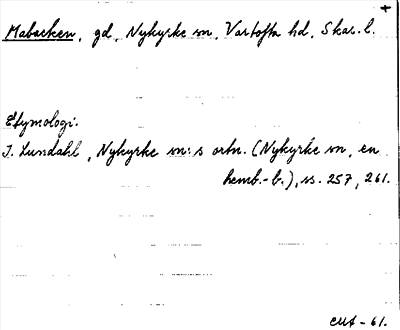 +
Mabacken, gd, Nykyrke sn, Vartofta hd, Skar. l.
Etymologi:
I. Lundahl, Nykyrke sn:s ortn. (Nykyrke sn, en
hemb.-b.), ss. 257, 261.
CUA - 61.